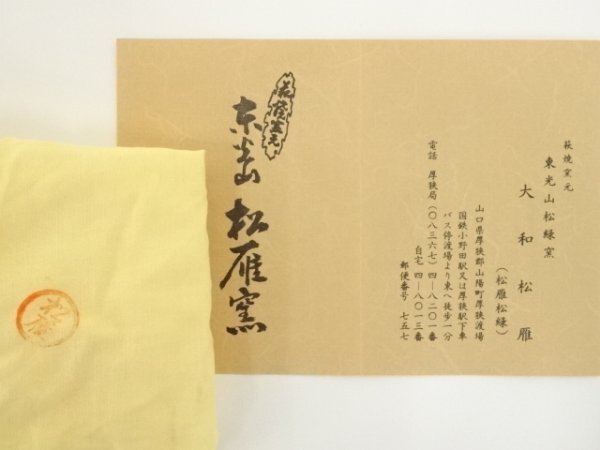 萩焼窯元
東光山松緑窯
大和松雁
(松雁松緑)
山口県厚狭郡山陽町厚狭渡場
国鉄小野田駅又は厚狭駅下車
バス停渡場より東へ徒歩一分
電話 厚狭局(〇八三六七)四-八二〇一番
自宅 四-八〇一三番
郵便番号 七五七
萩焼窯元
東光山 松雁窯